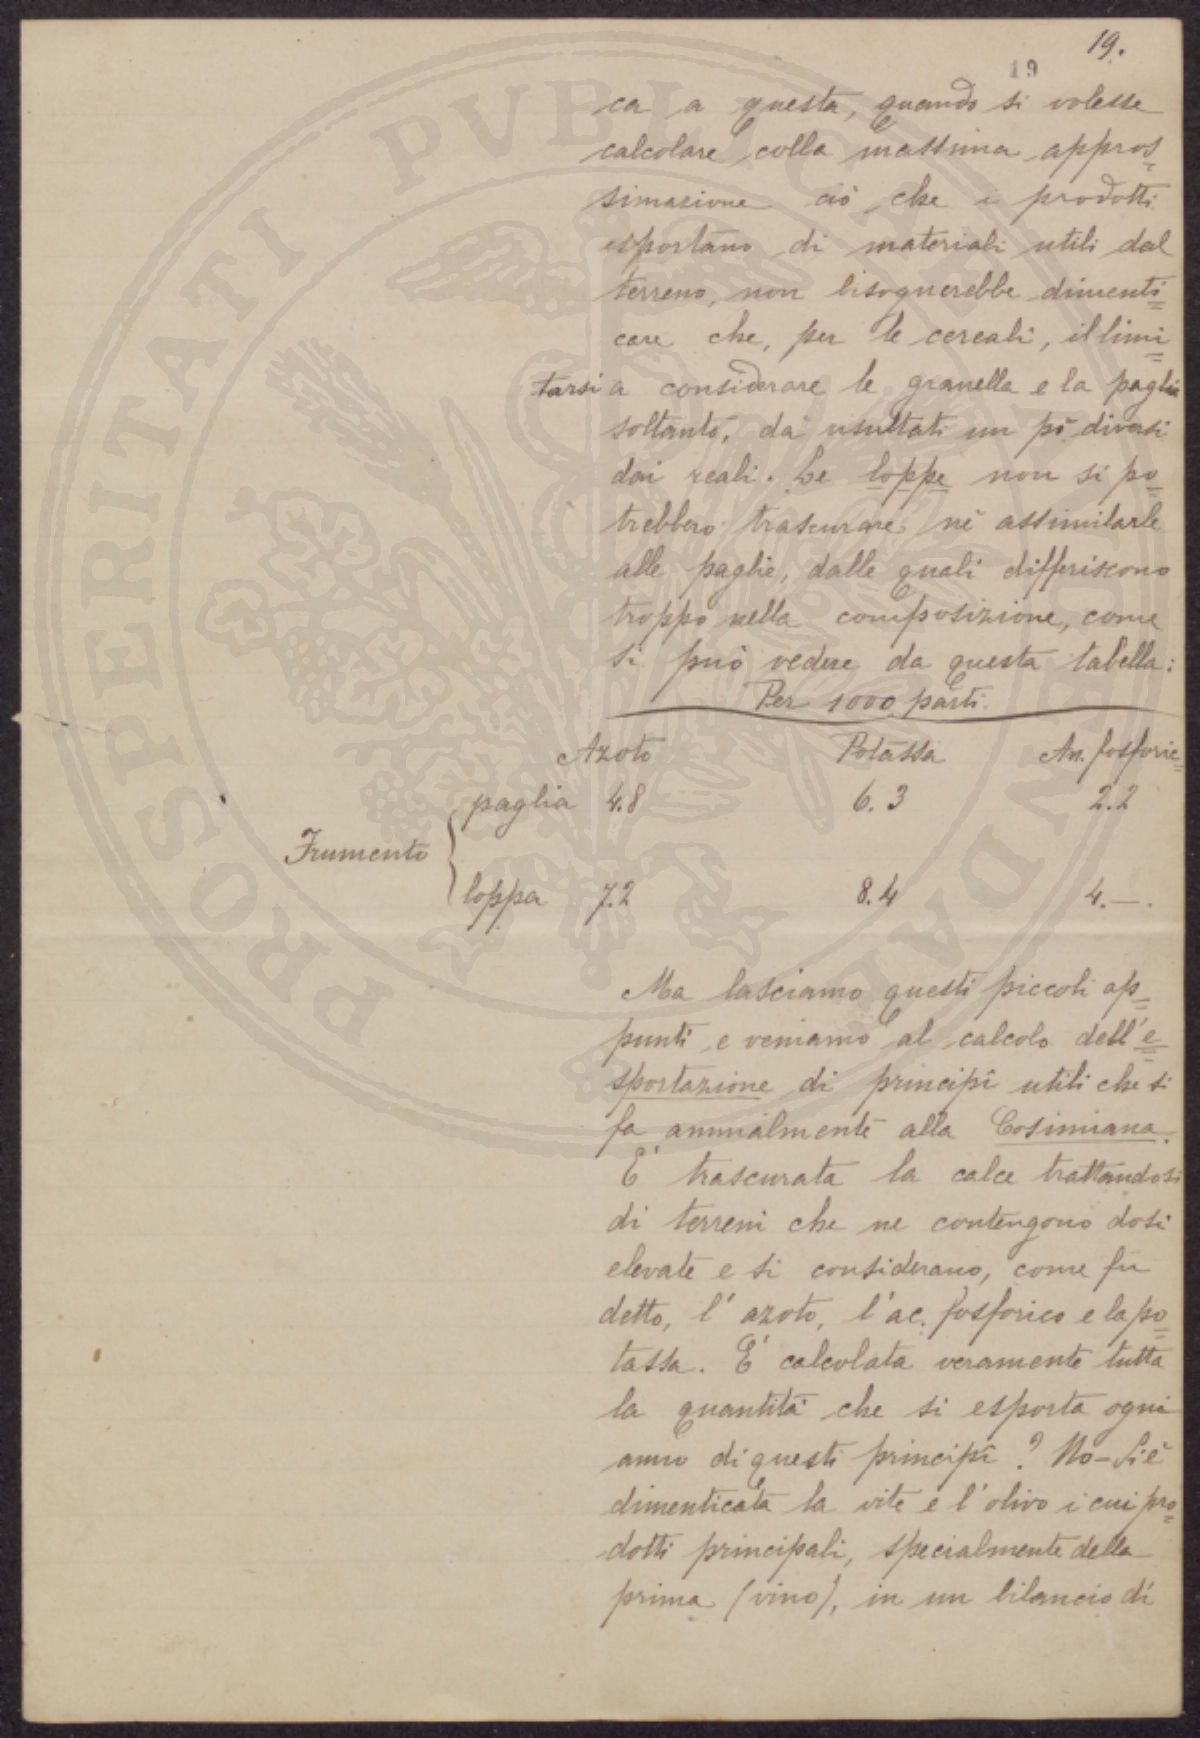 19.
19
ca a questa, quando si volesse
calcolare colla massima appros=
simazione ciò che i prodotti
esportano di materiali utili dal
terreno, non bisognerebbe dimenti=
care che, per le cereali, il limi=
tarsi a considerare le granella e la paglia
soltanto, dà risultati un pò diversi
dai reali. Le loppe non si po=
trebbero trascurare nè assimilarle
alle paglie, dalle quali differiscono
troppo nella composizione, come
si può vedere da questa tabella:
Per 1000 parti.
Azoto Potassa An. fosforic=
paglia 4.8 6.3 2.2
Frumento
loppa 7.2 8.4 4.—.
Ma lasciamo questi piccoli ap=
punti e veniamo al calcolo dell'e=
sportazione di principî utili che si
fa annualmente alla Cosimiana.
E' trascurata la calce trattandosi
di terreni che ne contengono dosi
elevate e si considerano, come fu
detto, l'azoto, l'ac. fosforico e la po=
tassa. E' calcolata veramente tutta
la quantità che si esporta ogni
anno di questi principî? No– Si è
dimenticata la vite e l'olivo i cui pro=
dotti principali, specialmente della
prima (vino), in un bilancio di
PROSPERITATI PVBLICAE AVGENDAE